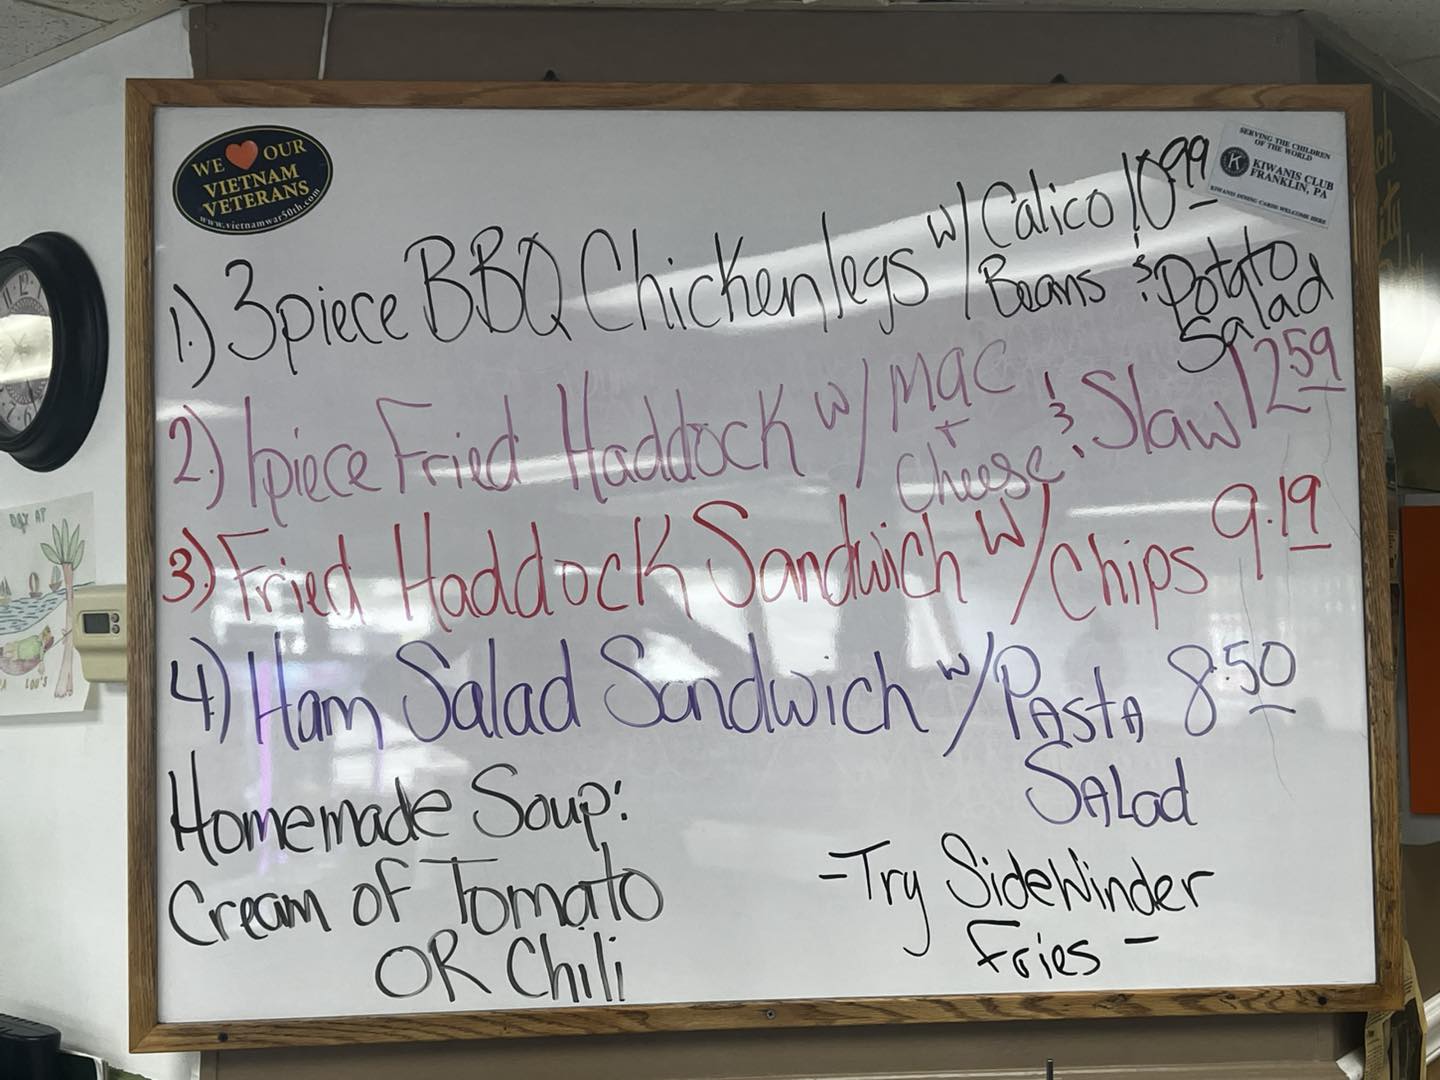 WE ❤ OUR
VIETNAM
VETERANS
www.vietnamwar50th.com
SERVING THE CHILDREN
OF THE WORLD
K KIWANIS CLUB
FRANKLIN, PA
KIWANIS DINING CARDS WELCOME HERE
1.) 3 piece BBQ Chicken legs w/ Calico 10.99
Beans & Potato
Salad
2.) 1 piece Fried Haddock w/ Mac + & Slaw 12.59
Cheese
3.) Fried Haddock Sandwich w/ Chips 9.19
4.) Ham Salad Sandwich w/ Pasta 8.50
Salad
Homemade Soup:
Cream of Tomato
OR Chili
- Try SideWinder
Fries -
DAY AT
LOU'S